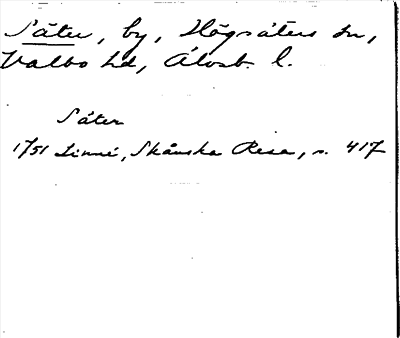 Säter, by, Högsäters sn,
Valbo hd, Älvsb. l.
Säter
1751 Linné, Skånska Resa, s. 417